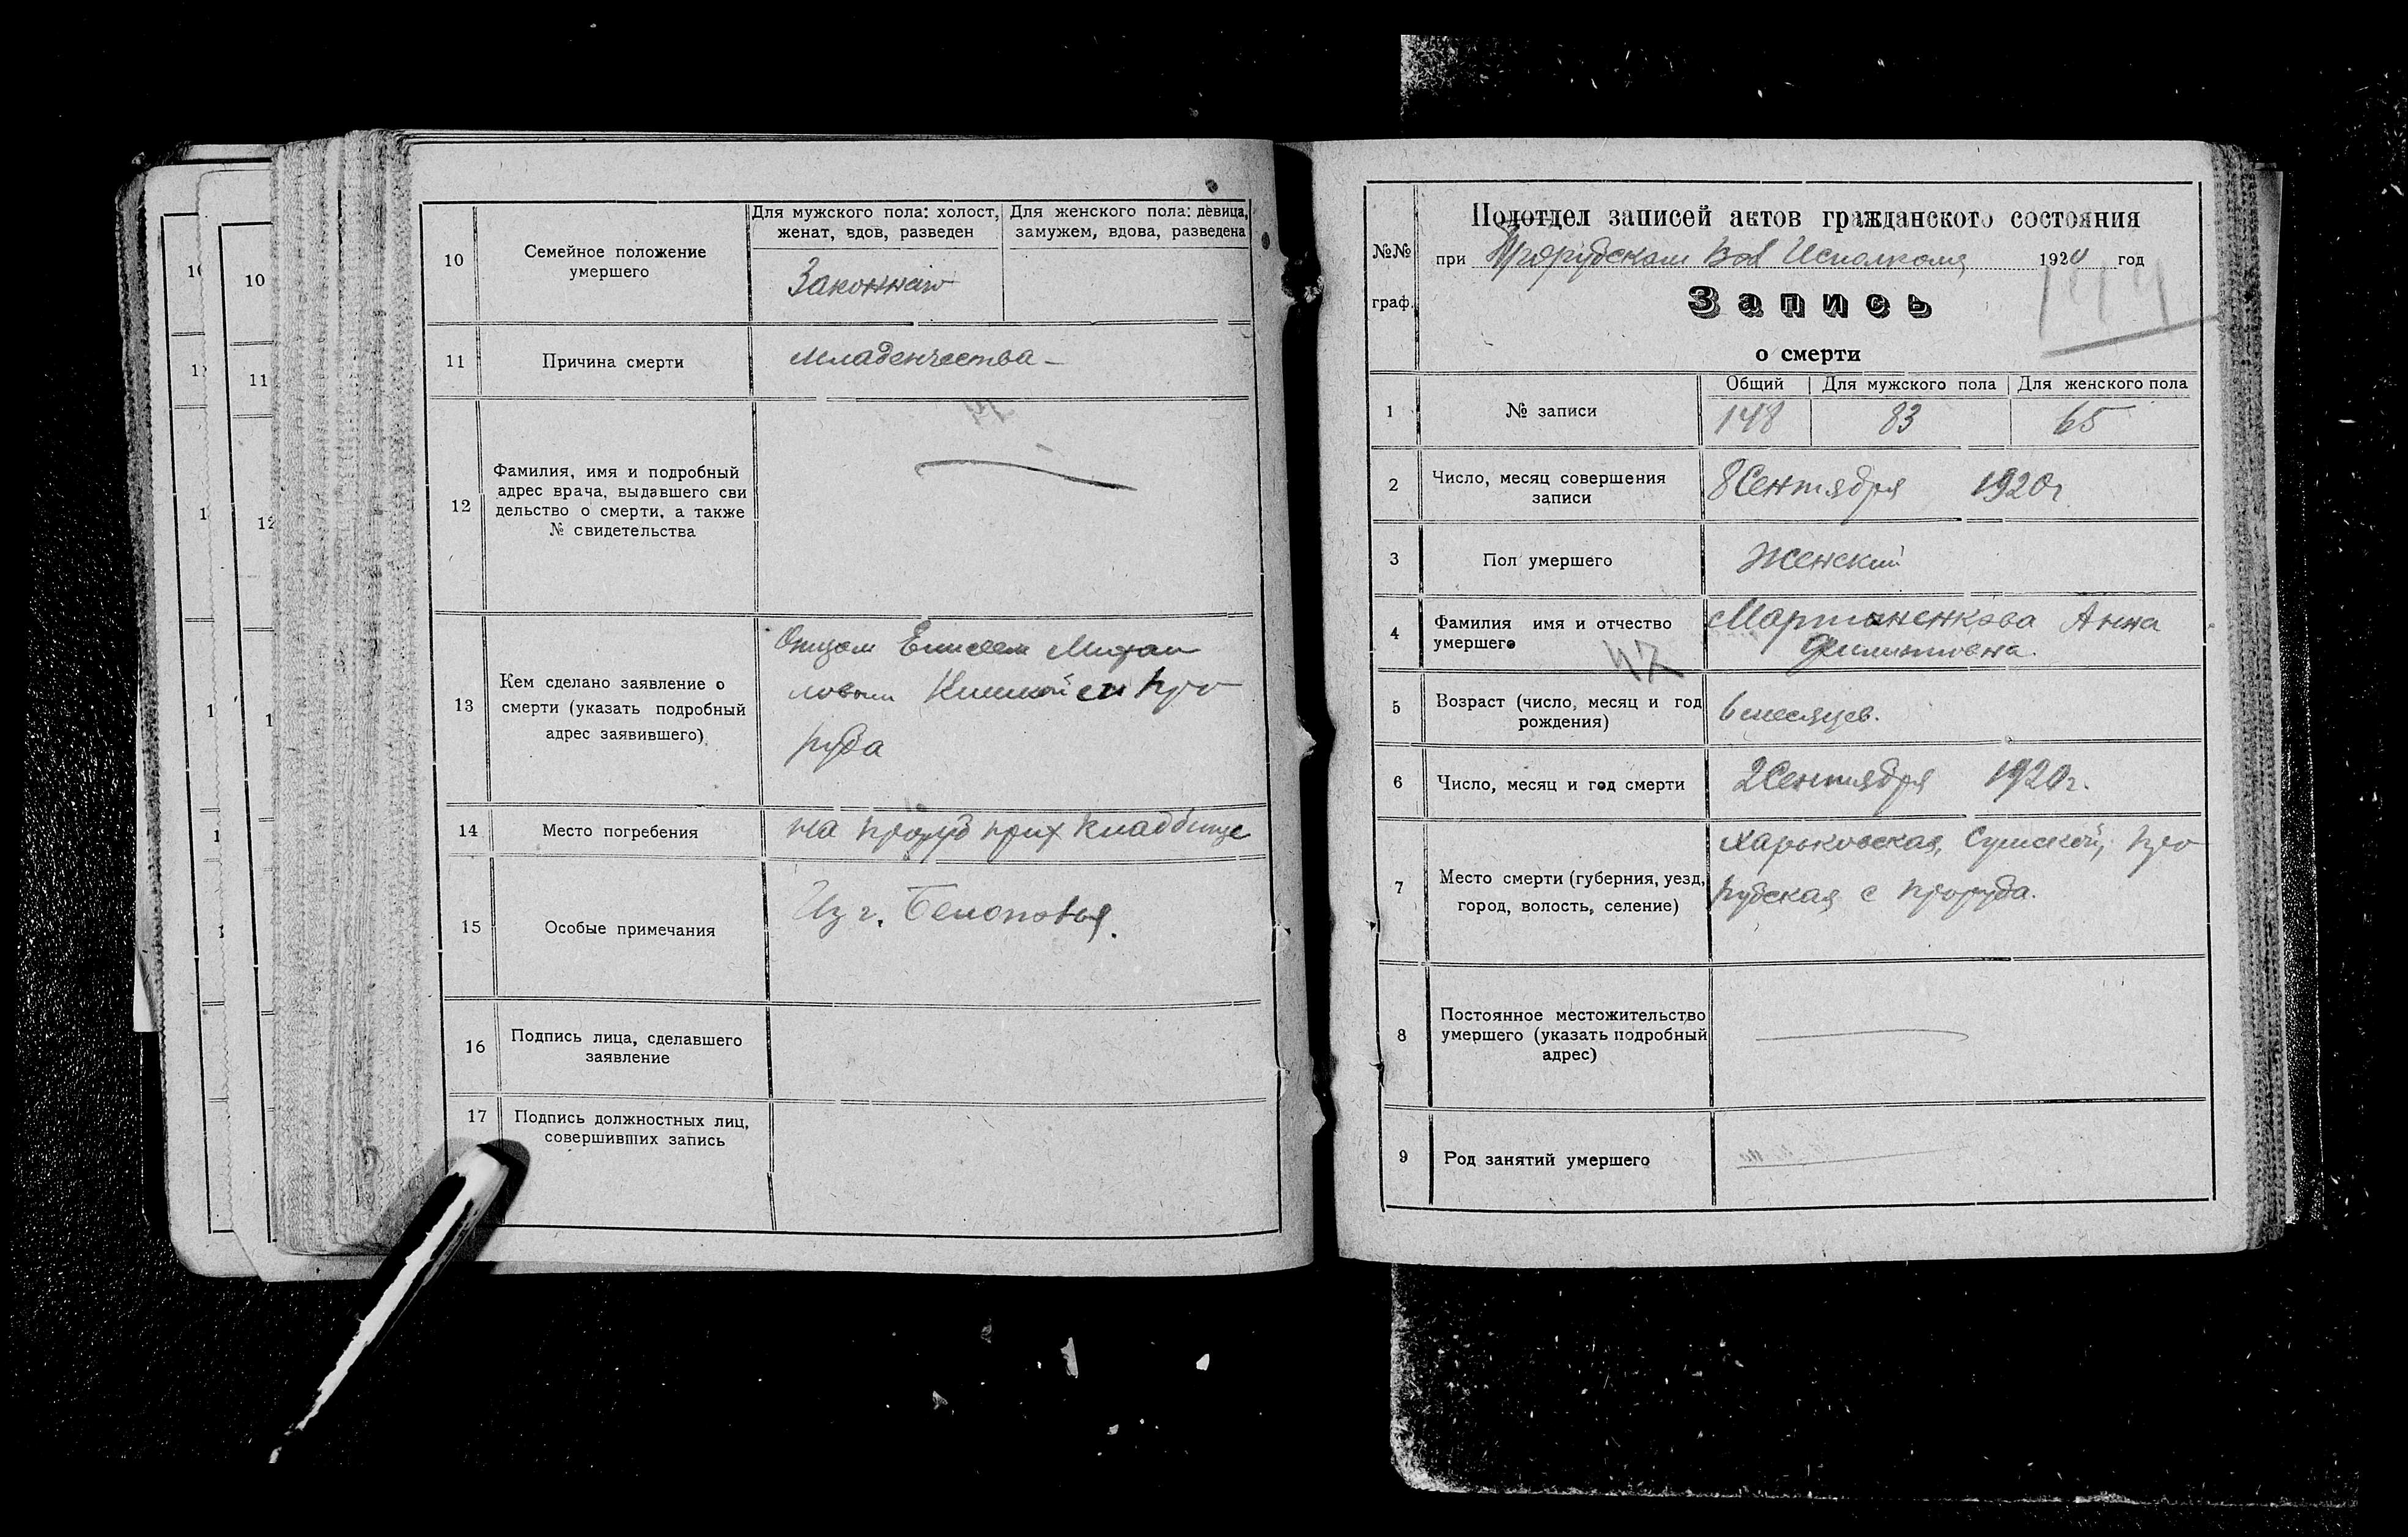 10
11
1
12
1
1
1
10
Семейное положение
умершего
Для мужского пола: холост,
женат, вдов, разведен
Для женского пола: девица,
замужем, вдова, разведена
11
Причина смерти
Младенчества
12
Фамилия, имя и подробный
адрес врача, выдавшего сви
дельство о смерти, а также
№ свидетельства
13
Кем сделано заявление о
смерти (указать подробный
адрес заявившего)
Отцом
руба
14
Место погребения
на кладбище
15
Особые примечания
Из г. Белополья.
16
Подпись лица, сделавшего
заявление
17
Подпись должностных лиц,
совершивших запись
№№
граф.
Подотдел записей актов гражданского состояния
при Прорубском Вол Исполкома 1920 год
Запись
о смерти
1
№ записи
Общий
Для мужского пола
Для женского пола
148
83
65
2
Число, месяц совершения
записи
8 Сентября 1920 г
3
Пол умершего
Женский
4
Фамилия имя и отчество
умершего
47
Мартыненкова Анна
Филипповна.
5
Возраст (число, месяц и год
рождения)
6 месяцев.
6
Число, месяц и год смерти
2 Сентября 1920 г.
7
Место смерти (губерния, уезд,
город, волость, селение)
Харьковская, Сумской, Про
рубская с Проруба.
8
Постоянное местожительство
умершего (указать подробный
адрес)
9
Род занятий умершего